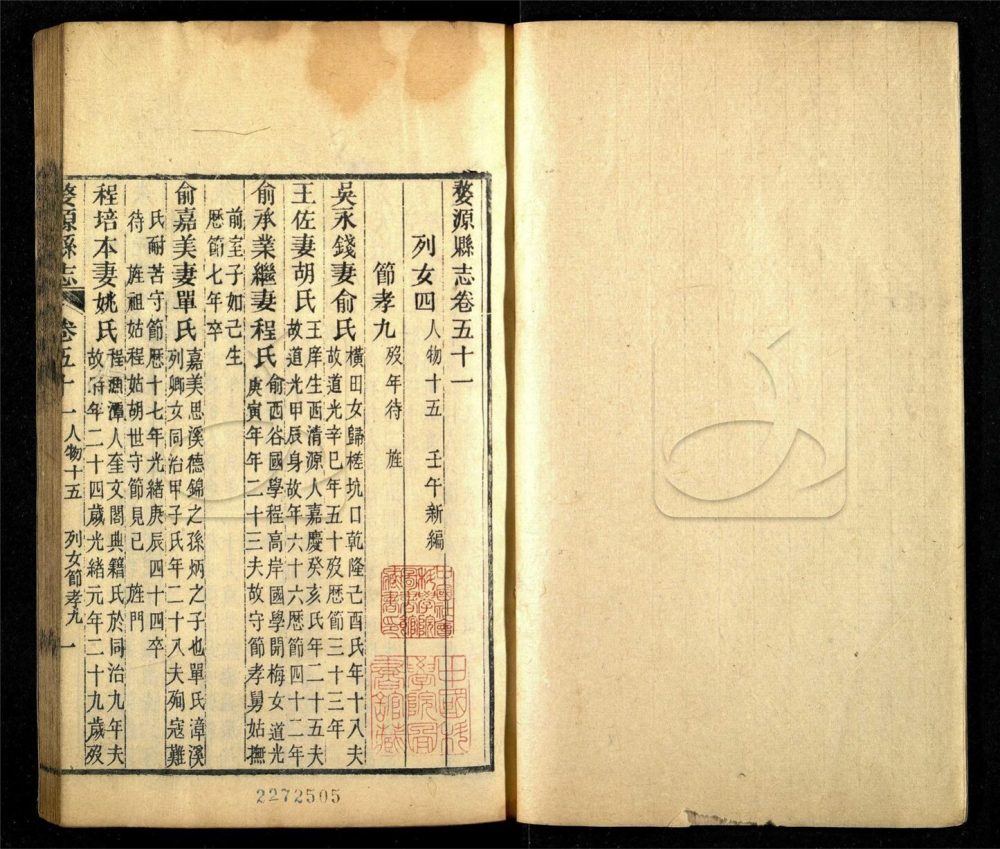 婺源縣志卷五十一
列女四 人物十五 壬午新編
節孝九 歿年待 旌
吳永錢妻俞氏 橫田女歸槎坑口乾隆己酉氏年十八夫
故道光辛巳年五十歿厯節三十三年
王佐妻胡氏 王庠生西清源人嘉慶癸亥氏年二十五夫
故道光甲辰身故年六十六厯節四十二年
俞承業繼妻程氏 俞西谷國學程高岸國學開梅女道光
庚寅年年二十三夫故守節孝舅姑撫
前室子如己生
厯節七年卒
俞嘉美妻單氏 嘉美思溪德錦之孫炳之子也單氏漳溪
列卿女同治甲子氏年二十八夫殉寇難
氏耐苦守節厯十七年光緒庚辰四十四卒
待 旌祖姑程姑胡世守節見已 旌門
程培本妻姚氏 程漁潭人奎文閣典籍氏於同治九年夫
故時年二十四歲光緒元年二十九歲歿
婺源縣志 卷五十一 人物十五 列女節孝九 一
中國科
學院圖
書館藏
2272505